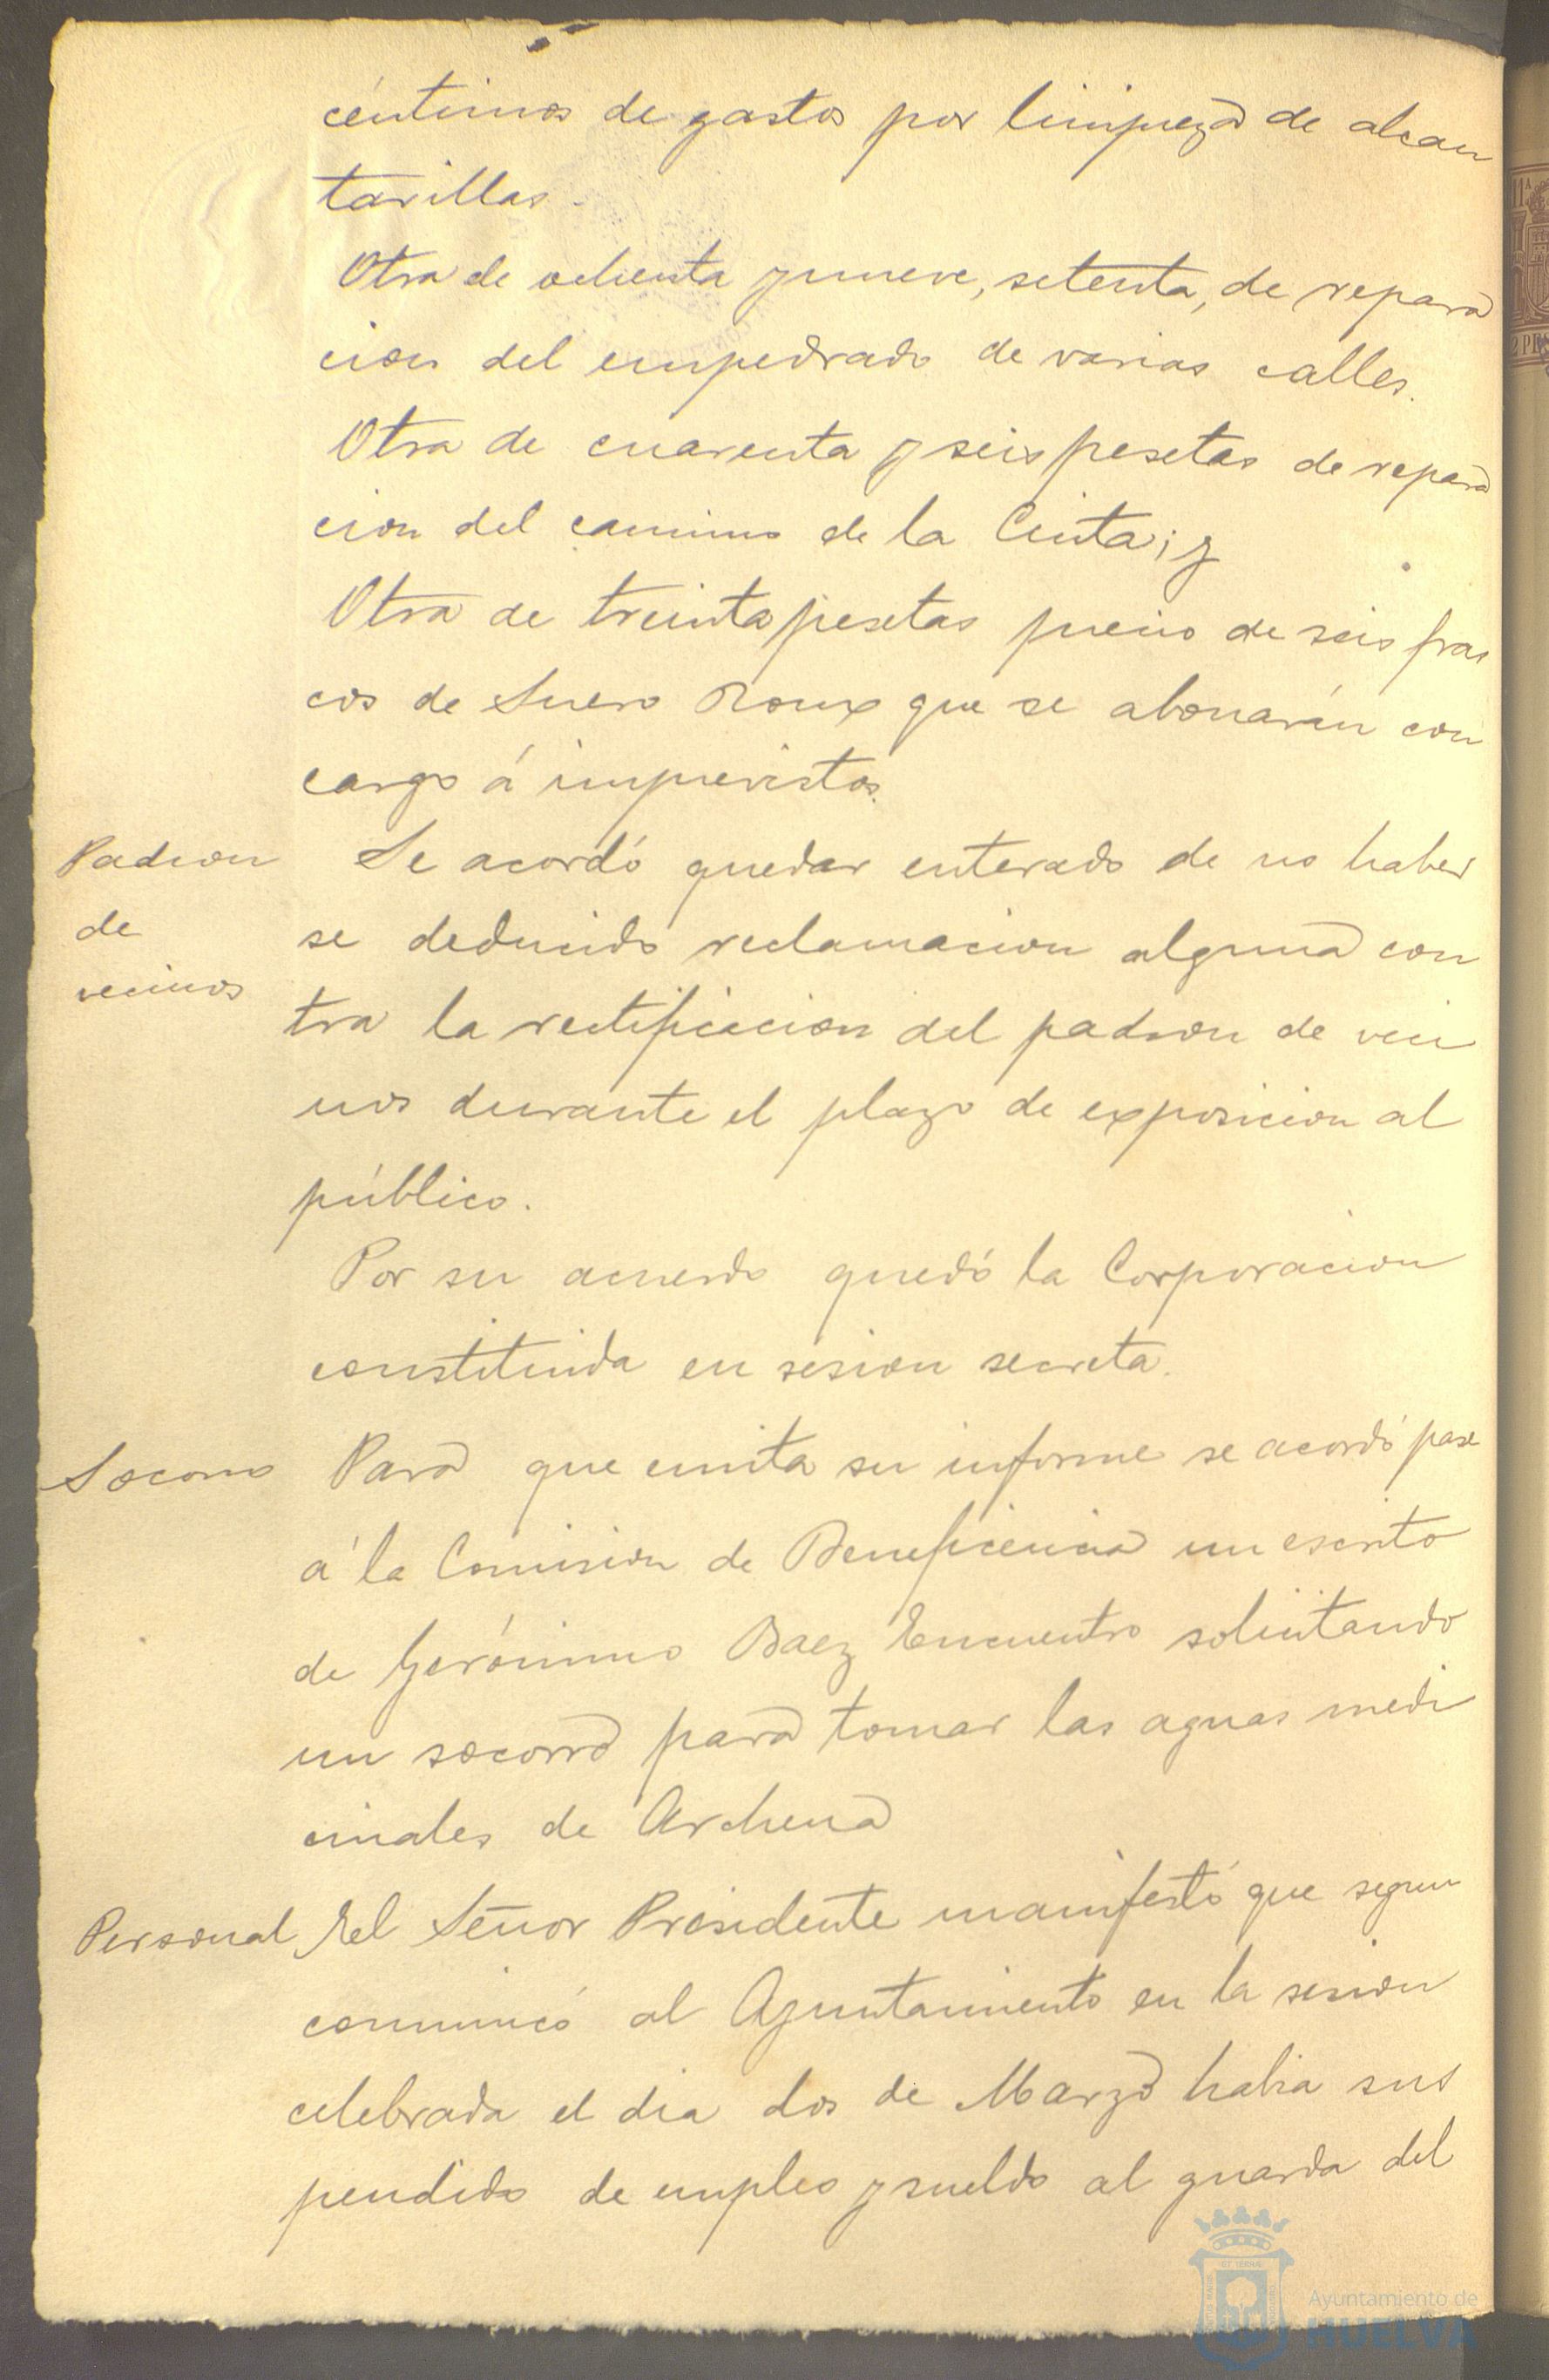 céntimos de gastos por limpieza de alcan
tarillas.
Otra de ochenta y nueve, setenta, de repara
cion del empedrado de varias calles.
Otra de cuarenta y seis pesetas de repara
cion del camino de la Cinta; y
Otra de treinta pesetas precio de seis fras
cos de Suero Roux que se abonarán con
cargo á imprevistos.
Padron
de
vecinos
Se acordó quedar enterado de no haber
se deducido reclamacion alguna con
tra la rectificacion del padron de veci
nos durante el plazo de exposicion al
público.
Por su acuerdo quedó la Corporacion
constituida en sesion secreta.
Socorro
Para que emita su informe se acordó pase
á la Comision de Beneficencia un escrito
de Gerónimo Baez Encuentro solicitando
un socorro para tomar las aguas medi
cinales de Archena
Personal
El Señor Presidente manifestó que segun
comunicó al Ayuntamiento en la sesion
celebrada el dia dos de Marzo habia sus
pendido de empleo y sueldo al guarda del
Ayuntamiento de
HUELVA